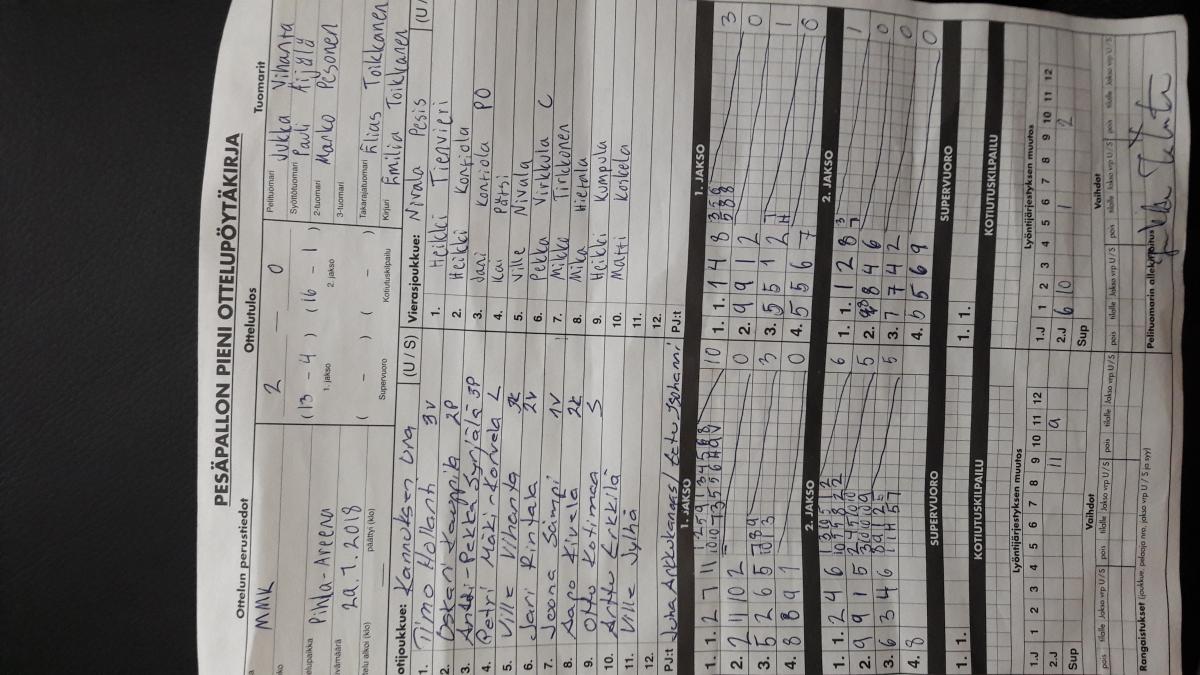 PESÄPALLON PIENI OTTELUPÖYTÄKIRJA
Ottelun perustiedot
Ottelutulos
Tuomarit
MMK
Pihla-Areena
29.7.2018
päättyi (klo)
2 — 0
(13 - 4) (16 - 1)
1. jakso 2. jakso
( - ) ( - )
Supervuoro Kotiutuskilpailu
Pelituomari Jukka Vihanta
Syöttötuomari Pauli Äijälä
2-tuomari Marko Pesonen
3-tuomari
Takarajatuomari Elias Toikkanen
Kirjuri Emilia Toikkanen
otijoukkue: Kannuksen Ura (U / S)
1. Timo Hollanti 3V
2. Oskari Kauppila 2P
3. Antti-Pekka Syrjälä 3P
4. Petri Mäkinkorvela L
5. Ville Vihanta 3K
6. Jani Rintala 2V
7. Joona Sämpi 1V
8. Aapo Kivelä 2K
9. Otto Kotimaa S
10. Arttu Erkkilä
11. Ville Jylhä
12.
PJ:t Juha Arkkukangas / Eetu Isohanni
Vierasjoukkue: Nivala Pesis (U /
1. Heikki Tienvieri
2. Heikki Kontiola
3. Jani Kontiola PO
4. Kai Pätsi
5. Ville Nivala
6. Pekka Virkkula C
7. Mikko Tirkkonen
8. Mika Hietala
9. Heikki Kumpula
10. Matti Koskela
11.
12.
PJ:t
1. JAKSO
1. 1. 2 7 11 10
2. 2 11 10 2 0
3. 5 2 6 5 3
4. 8 8 9 1 0
2. JAKSO
1. 1. 2 4 6 6
2. 9 9 1 5 5
3. 6 3 4 6 5
4. 8
SUPERVUORO
1. 1.
KOTIUTUSKILPAILU
1. JAKSO
1. 1. 1 4 8 3
2. 9 9 1 2 0
3. 5 5 1 2 1
4. 5 5 6 7 0
2. JAKSO
1. 1. 1 2 8 1
2. 8 4 6 0
3. 7 7 4 2 0
4. 5 5 6 9 0
SUPERVUORO
1. 1.
KOTIUTUSKILPAILU
Lyöntijärjestyksen muutos
1.J 1 2 3 4 5 6 7 8 9 10 11 12
2.J 11 9
Sup
Lyöntijärjestyksen muutos
1.J 1 2 3 4 5 6 7 8 9 10 11 12
2.J 6 10 1 2
Sup
Vaihdot
pois tilalle Jakso vrp U / S pois tilalle Jakso vrp U / S pois tilalle Jakso vrp U / S
Vaihdot
pois tilalle Jakso vrp U / S pois tilalle Jakso vrp U / S pois tilalle Jakso vrp U / S
Rangaistukset (joukkue, pelaaja nro, jakso vrp U / S ja syy)
Pelituomarin allekirjoitus